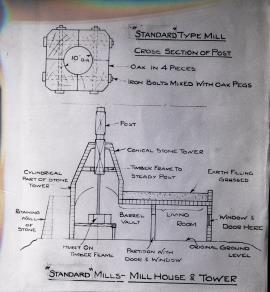 "STANDARD" TYPE MILL
CROSS SECTION OF POST
10" DIA
OAK IN 4 PIECES
IRON BOLTS MIXED WITH OAK PEGS
POST
CONICAL STONE TOWER
CYLINDRICAL
PART OF STONE
TOWER
TIMBER FRAME TO
STEADY POST
EARTH FILLING
GRASSED
RETAINING
WALL OF
STONE
BARREL
VAULT
LIVING
ROOM
WINDOW &
DOOR HERE
HURST ON
TIMBER FRAME
PARTITION WITH
DOOR & WINDOW
ORIGINAL GROUND
LEVEL
"STANDARD" MILLS - MILL HOUSE & TOWER